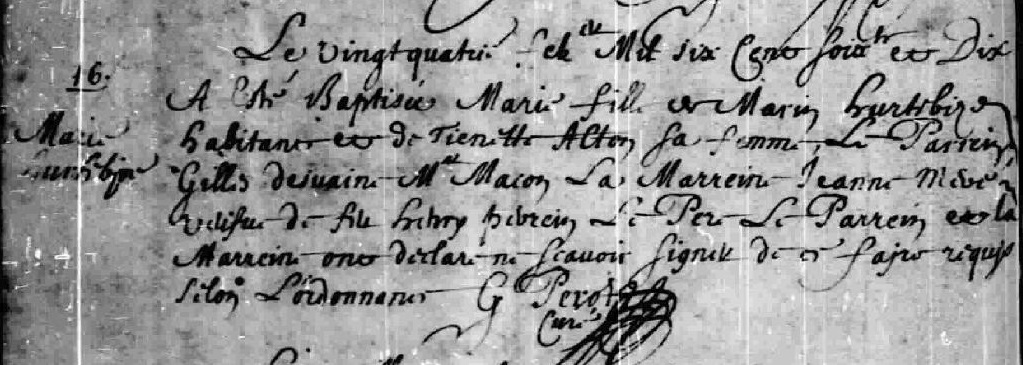 Le vingt quatrie. feb.er Mil six Cent soix.te et Dix
16.
A Esté Baptisée Marie fille de Marin hurtebize
Marie
habitant et de Tienette Alton sa femme, Le Parrein
hurtebize
Gilles desuaine M.e Macon La Marreine Jeanne
veufue de feu henry Le Pere Le Parrein et la
Marreine ont declaré ne scavoir signer de ce faire requis
selon L'ordonnance G Perot
Curé